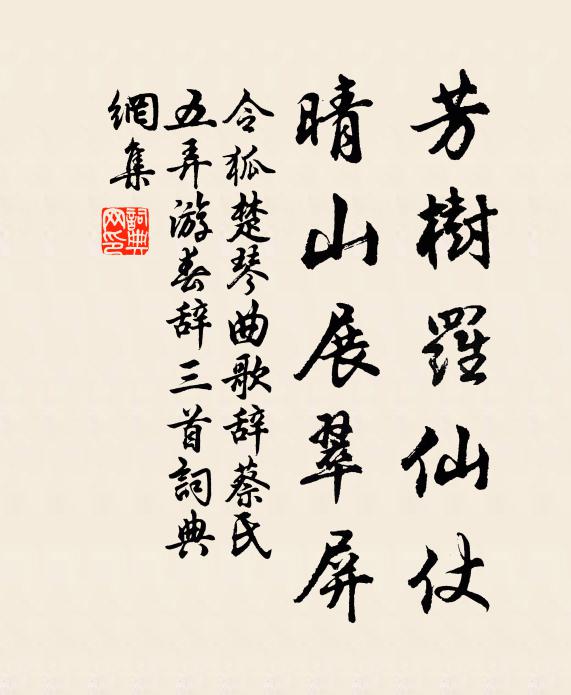 芳樹羅仙仗
晴山展翠屏
令狐楚琴曲歌辞蔡氏
五弄游春辞三首詞典
網集
詞典
网印